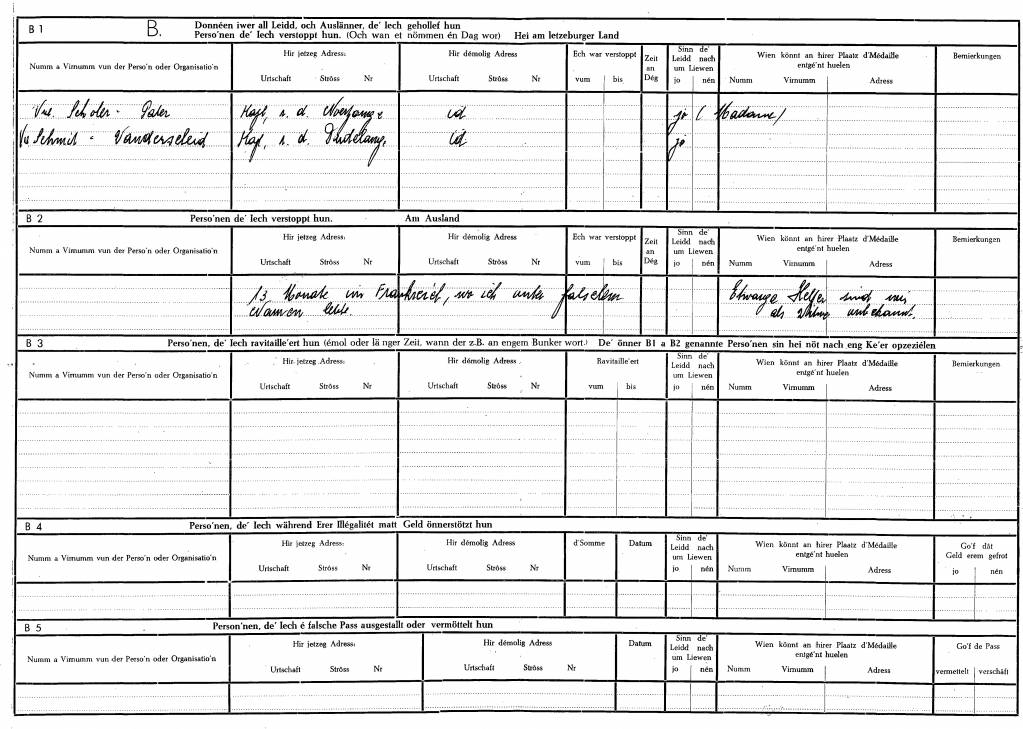 B 1 B. Donnéen iwer all Leidd, och Auslänner, de' Iech gehollef hun
Perso'nen de' Iech verstoppt hun. (Och wan et nömmen én Dag wor) Hei am letzeburger Land
Numm a Virnumm vun der Perso'n oder Organisatio'n
Hir jetzeg Adress:
Urtschaft Ströss Nr
Hir démolig Adress
Urtschaft Ströss Nr
Ech war verstoppt
vum bis
Zeit an Dég
Sinn de' Leidd nach um Liewen
jo nén
Wien könnt an hirer Plaatz d'Médaille entgé'nt huelen
Numm Virnumm Adress
Bemierkungen
Scholer - Pater id jo ( Madame )
Schmit - Vanderscheid id jo
B 2 Perso'nen de' Iech verstoppt hun. Am Ausland
Numm a Virnumm vun der Perso'n oder Organisatio'n
Hir jetzeg Adress:
Urtschaft Ströss Nr
Hir démolig Adress
Urtschaft Ströss Nr
Ech war verstoppt
vum bis
Zeit an Dég
Sinn de' Leidd nach um Liewen
jo nén
Wien könnt an hirer Plaatz d'Médaille entgé'nt huelen
Numm Virnumm Adress
Bemierkungen
13 Monate in Frankreich, wo ich unter falschem Etwaige Helfer sind mir
Namen lebte. als unbekannt.
B 3 Perso'nen, de' Iech ravitaille'ert hun (émol oder länger Zeit, wann der z.B. an engem Bunker wort.) De' önner B1 a B2 genannte Perso'nen sin hei nöt nach eng Ke'er opzeziélen
Numm a Virnumm vun der Perso'n oder Organisatio'n
Hir jetzeg Adress:
Urtschaft Ströss Nr
Hir démolig Adress
Urtschaft Ströss Nr
Ravitaille'ert
vum bis
Sinn de' Leidd nach um Liewen
jo nén
Wien könnt an hirer Plaatz d'Médaille entgé'nt huelen
Numm Virnumm Adress
Bemierkungen
B 4 Perso'nen, de' Iech während Erer Illégalitét matt Geld önnerstötzt hun
Numm a Virnumm vun der Perso'n oder Organisatio'n
Hir jetzeg Adress:
Urtschaft Ströss Nr
Hir démolig Adress
Urtschaft Ströss Nr
d'Somme
Datum
Sinn de' Leidd nach um Liewen
jo nén
Wien könnt an hirer Plaatz d'Médaille entgé'nt huelen
Numm Virnumm Adress
Go'f dât Geld erem gefrot
jo nén
B 5 Person'nen, de' Iech é falsche Pass ausgestallt oder vermöttelt hun
Numm a Virnumm vun der Perso'n oder Organisatio'n
Hir jetzeg Adress:
Urtschaft Ströss Nr
Hir démolig Adress
Urtschaft Ströss Nr
Datum
Sinn de' Leidd nach um Liewen
jo nén
Wien könnt an hirer Plaatz d'Médaille entgé'nt huelen
Numm Virnumm Adress
Go'f de Pass
vermettelt verschäft